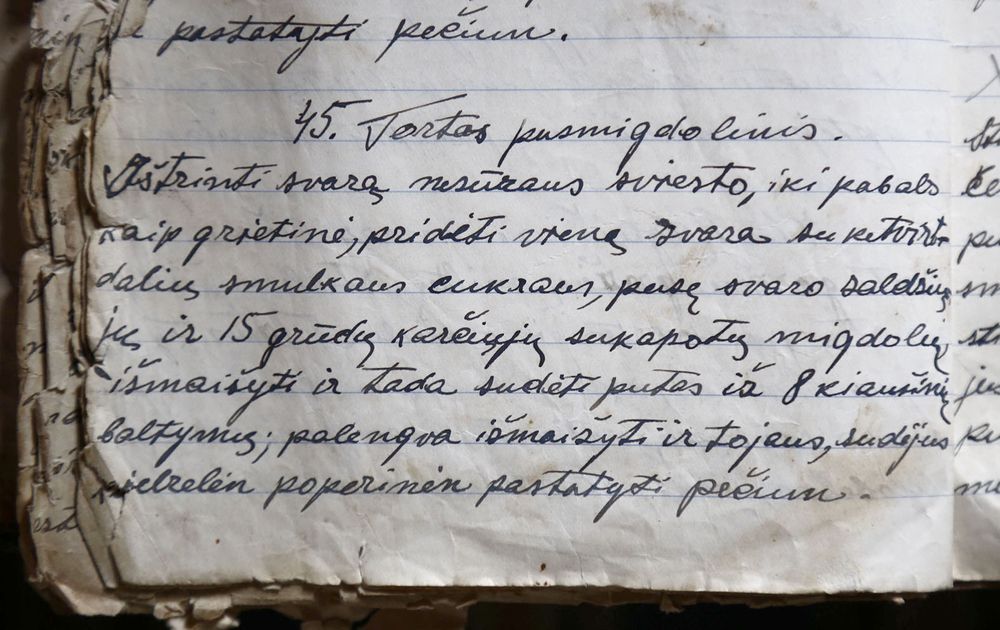 pastatyti pečiun.
45. Tortas pusmigdolinis.
Ištrinti svarą nesūraus sviesto, iki pabals
kaip grietinė, pridėti vieną svarą su ketvirt-
daliu smulkaus cukraus, pusę svaro saldžių-
jų ir 15 grūdų karčiųjų sukapotų migdolių
išmaišyti ir tada sudėti putas iš 8 kiaušinių
baltymų; palengva išmaišyti ir tojaus, sudėjus
popierinėn pastatyti pečiun.